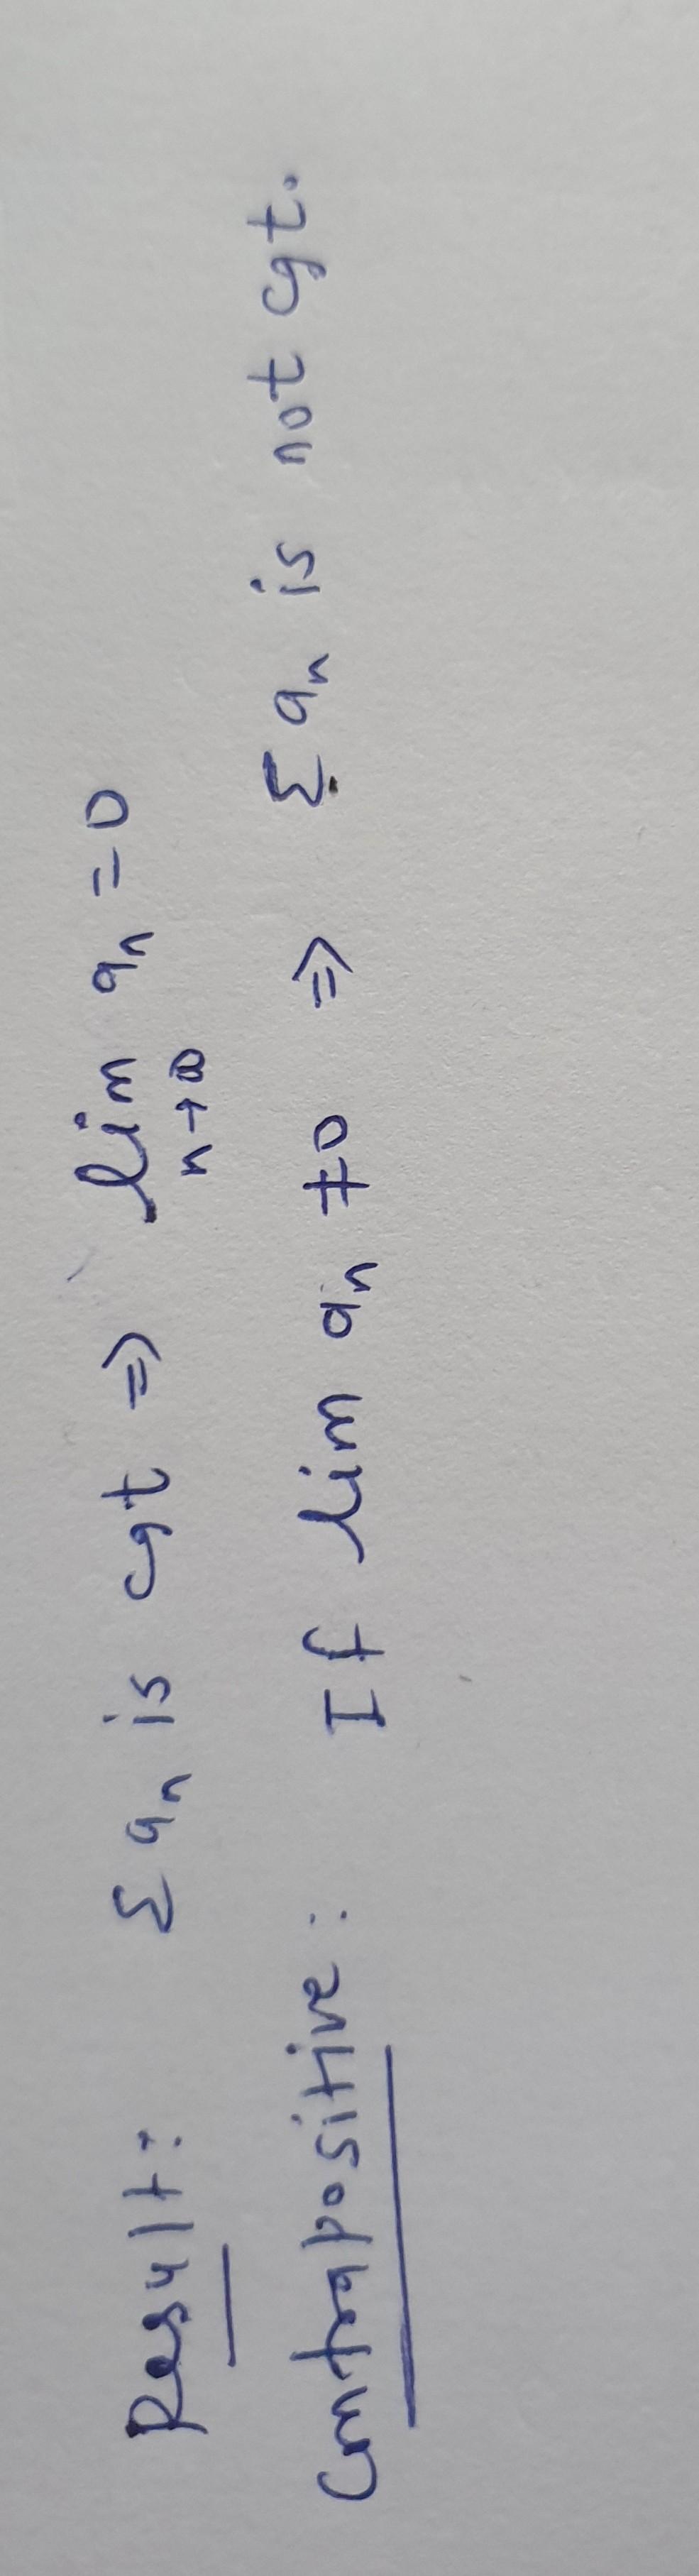 Result: Σ aₙ is cgt ⇒ lim aₙ = 0
n→∞
Contrapositive: If lim aₙ ≠ 0 ⇒ Σ aₙ is not cgt.